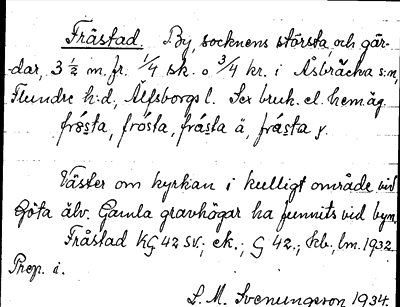 Fråstad. By, socknens största, och går-
dar, 3 ½ m. fr. 1/4 sk. o 3/4 kr. i Åsbräcka s:n,
Flundre h:d, Älfsborgs l. Sex bruk. el. hemäg.
frǻsta, frósta, frǻsta ä, frǻsta y.
Väster om kyrkan i kulligt område vid
Göta älv. Gamla gravhögar ha funnits vid byn.
Fråstad KG 42 SV.; ek.; G 42.; kb., lm. 1932.
Prep. i.
S. M. Svenungsson 1934.